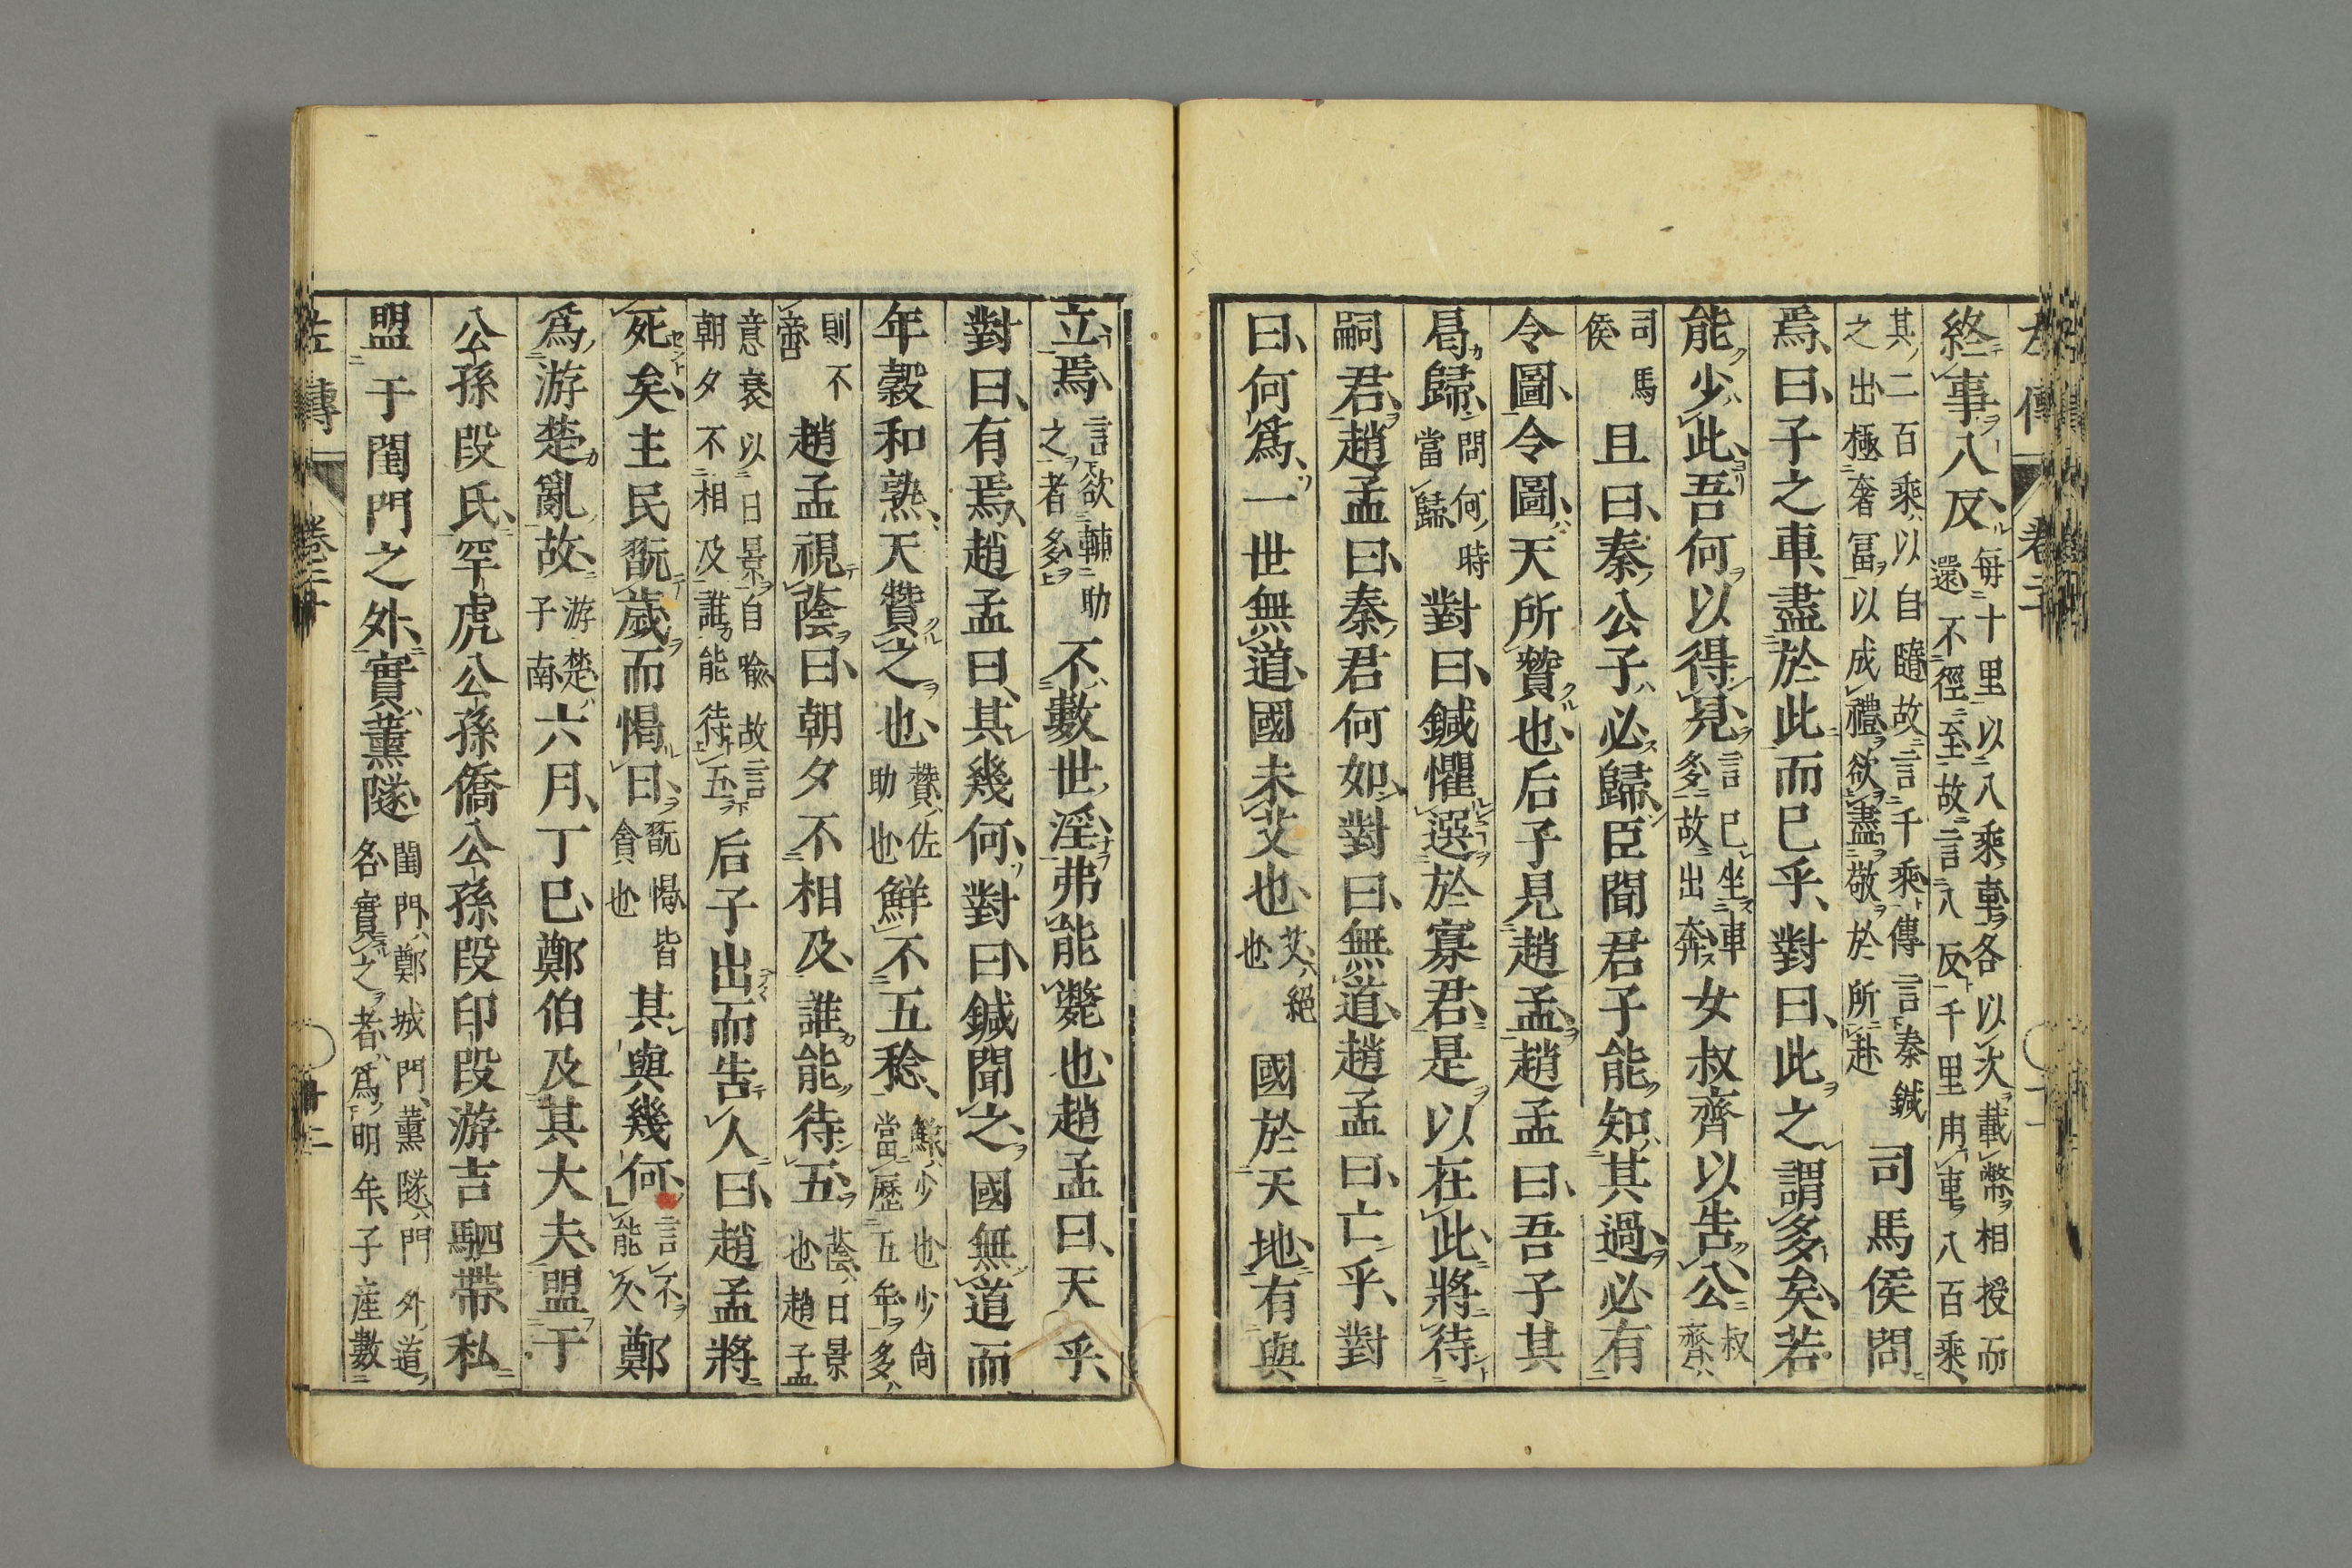 終事八反、每十里以八乘車各以次載幣相授而還不徑至故言八反千里用車八百乘、
其二百乘以自隨故言千乘傳言秦鍼之出極奢富以成禮欲盡敬於所赴司馬侯問
焉、曰子之車盡於此而已乎、對曰、此之謂多矣、若
能少此、吾何以得見、言已坐車多故出奔女叔齊以告公叔齊
司馬侯且曰、秦公子必歸、臣聞君子能知其過、必有
令圖、令圖、天所贊也、后子見趙孟、趙孟曰、吾子其
曷歸、問何時當歸對曰、鍼懼選於寡君、是以在此、將待
嗣君、趙孟曰、秦君何如、對曰、無道、趙孟曰、亡乎、對
曰、何爲、一世無道、國未艾也、艾絕也國於天地、有與
立焉、言欲輔助之者多不數世淫、弗能斃也、趙孟曰、天乎、
對曰、有焉、趙孟曰、其幾何、對曰、鍼聞之、國無道而
年穀和熟、天贊之也、贊佐助也鮮不五稔、鮮少也少尚當歷五年多
則不啻趙孟視蔭曰、朝夕不相及、誰能待五、蔭日景也趙孟
意衰以日景自喩故言朝夕不相及誰能待五后子出而告人曰、趙孟將
死矣、主民翫歲而愒日、翫愒皆貪也其與幾何、言不能久鄭
爲游楚亂故、游楚子南六月、丁巳、鄭伯及其大夫、盟于
公孫段氏、罕虎公孫僑公孫段印段游吉駟帶、私
盟于閨門之外、實薰隧閨門鄭城門薰隧門外道名實之者爲明年子產數
左傳 卷二十 十二